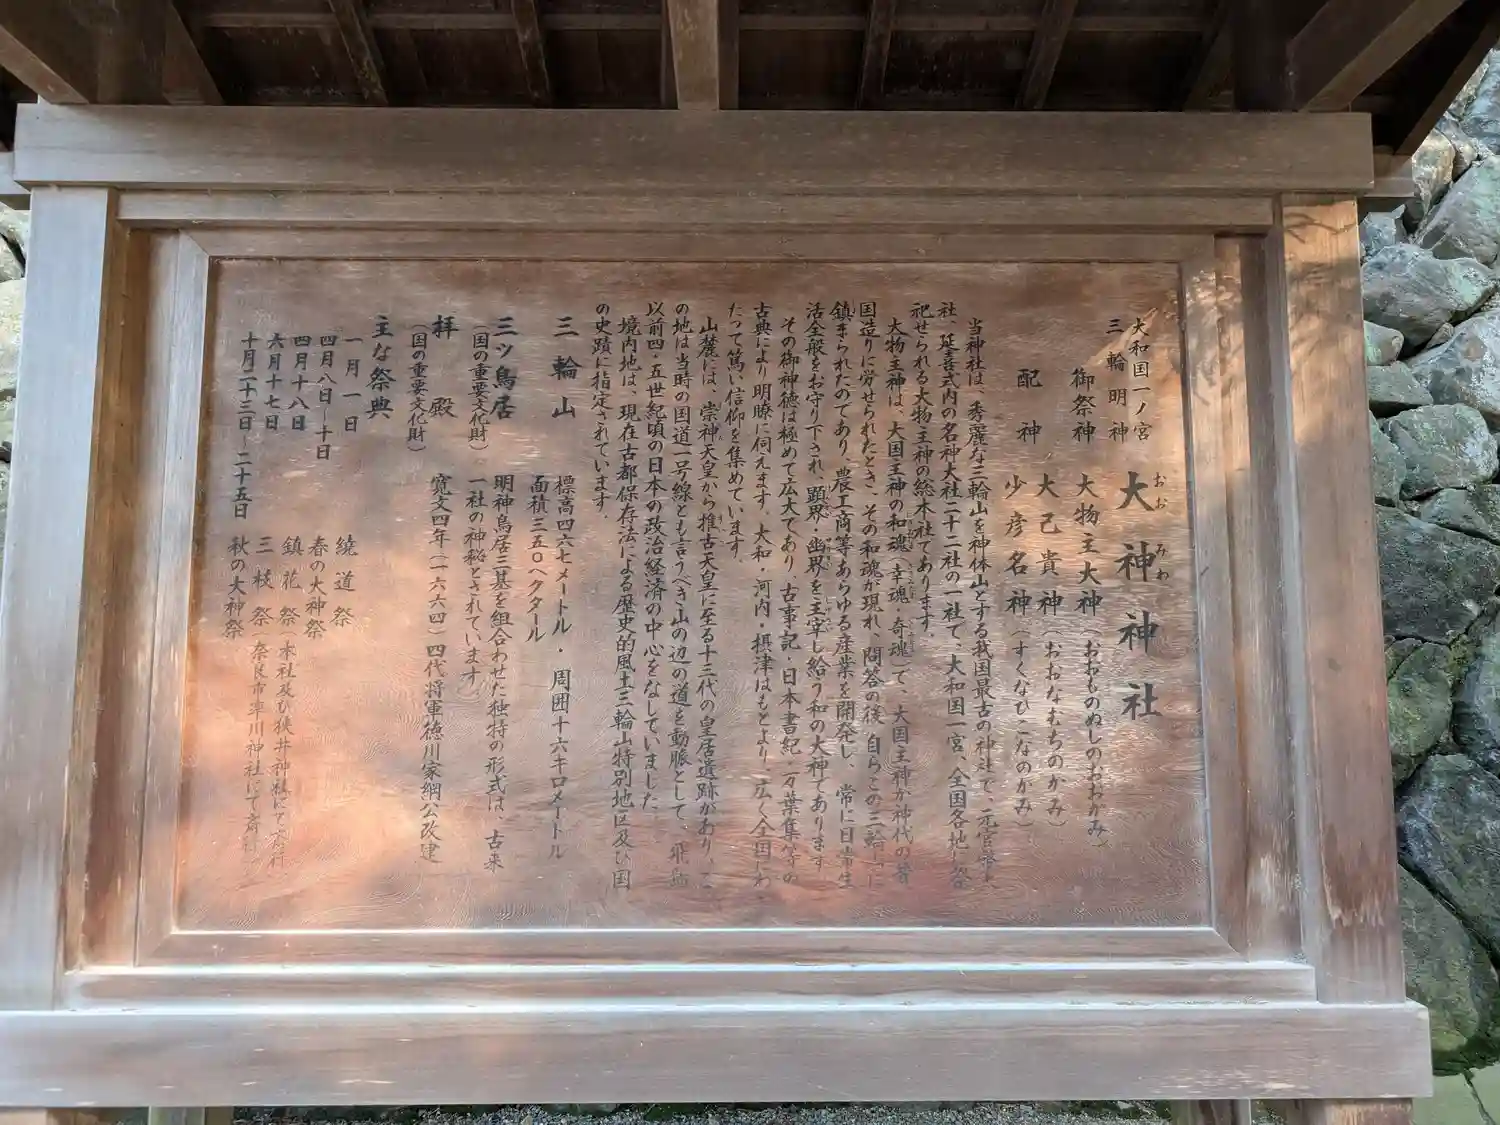 大和国一ノ宮
三輪明神
大神神社
おお みわ
御祭神 大物主大神（おおものぬしのおおかみ）
配神 大己貴神（おおなむちのかみ）
少彦名神（すくなひこなのかみ）
当神社は、秀麗な三輪山を神体山とする我国最古の神社で、元官幣大
社、延喜式内の名神大社二十二社の一社で、大和国一宮、全国各地に祭
祀せられる大物主神の総本社であります。
大物主神は、大国主神の和魂（幸魂 奇魂）で、大国主神が神代の昔
国造りに労せられたとき、その和魂が現れ、問答の後、自らこの三輪山に
鎮まられたのであり、農工商等あらゆる産業を開発し、常に日常生
活全般をお守り下され、顕界・幽界を主宰し給う和の大神であります
その御神徳は極めて広大であり、古事記・日本書紀・万葉集等の
古典により明瞭に伺えます。大和・河内・摂津はもとより、広く全国にわ
たって篤い信仰を集めています。
山麓には、崇神天皇から推古天皇に至る十三代の皇居遺跡があり、こ
の地は当時の国道一号線とも言うべき山の辺の道を動脈として、飛鳥
以前四・五世紀頃の日本の政治経済の中心をなしていました
境内地は、現在古都保存法による歴史的風土三輪山特別地区及び国
の史蹟に指定されています。
三輪山 標高四六七メートル・周囲十六キロメートル
面積三五〇ヘクタール
三ツ鳥居 明神鳥居三基を組合わせた独特の形式は、古来
（国の重要文化財） 一社の神秘とされています。
拝殿 寛文四年（一六六四）四代将軍徳川家綱公改建
（国の重要文化財）
主な祭典
一月一日 繞道祭
四月八日〜十日 春の大神祭
四月十八日 鎮花祭（本社及び狭井神社にて斎行）
六月十七日 三枝祭（奈良市率川神社にて斎行）
十月二十三日〜二十五日 秋の大神祭